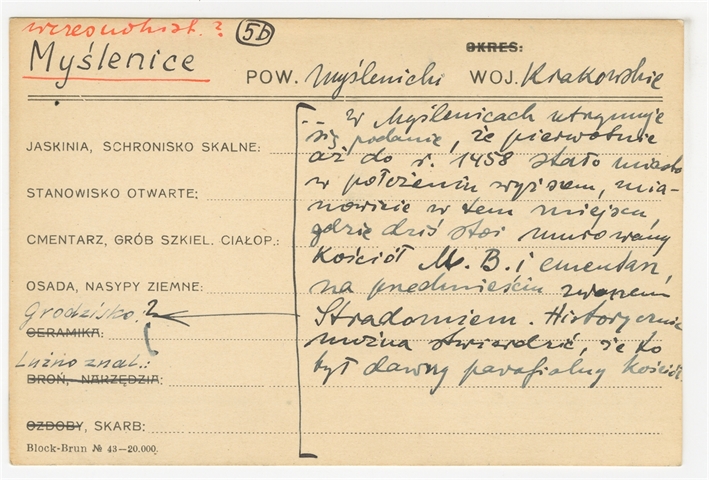 wczesnohist.? 5b
OKRES:
Myślenice
POW. Myślenicki WOJ. Krakowskie
.. W Myślenicach utrzymuje
się podanie, że pierwotnie
JASKINIA, SCHRONISKO SKALNE:
aż do r. 1458 stało miasto
STANOWISKO OTWARTE:
w położeniu wyższem, mia-
nowicie w tem miejscu,
CMENTARZ, GRÓB SZKIEL. CIAŁOP.:
gdzie dziś stoi murowany
Kościół M. B. i cmentarz,
OSADA, NASYPY ZIEMNE:
na przedmieściu zwanem
Grodzisko?
Stradomiem. Historycznie
CERAMIKA:
można stwierdzić, że to
Luźno znal.:
był dawny parafialny Kościół.
BROŃ, NARZĘDZIA:
OZDOBY, SKARB:
Block-Brun № 43—20.000.